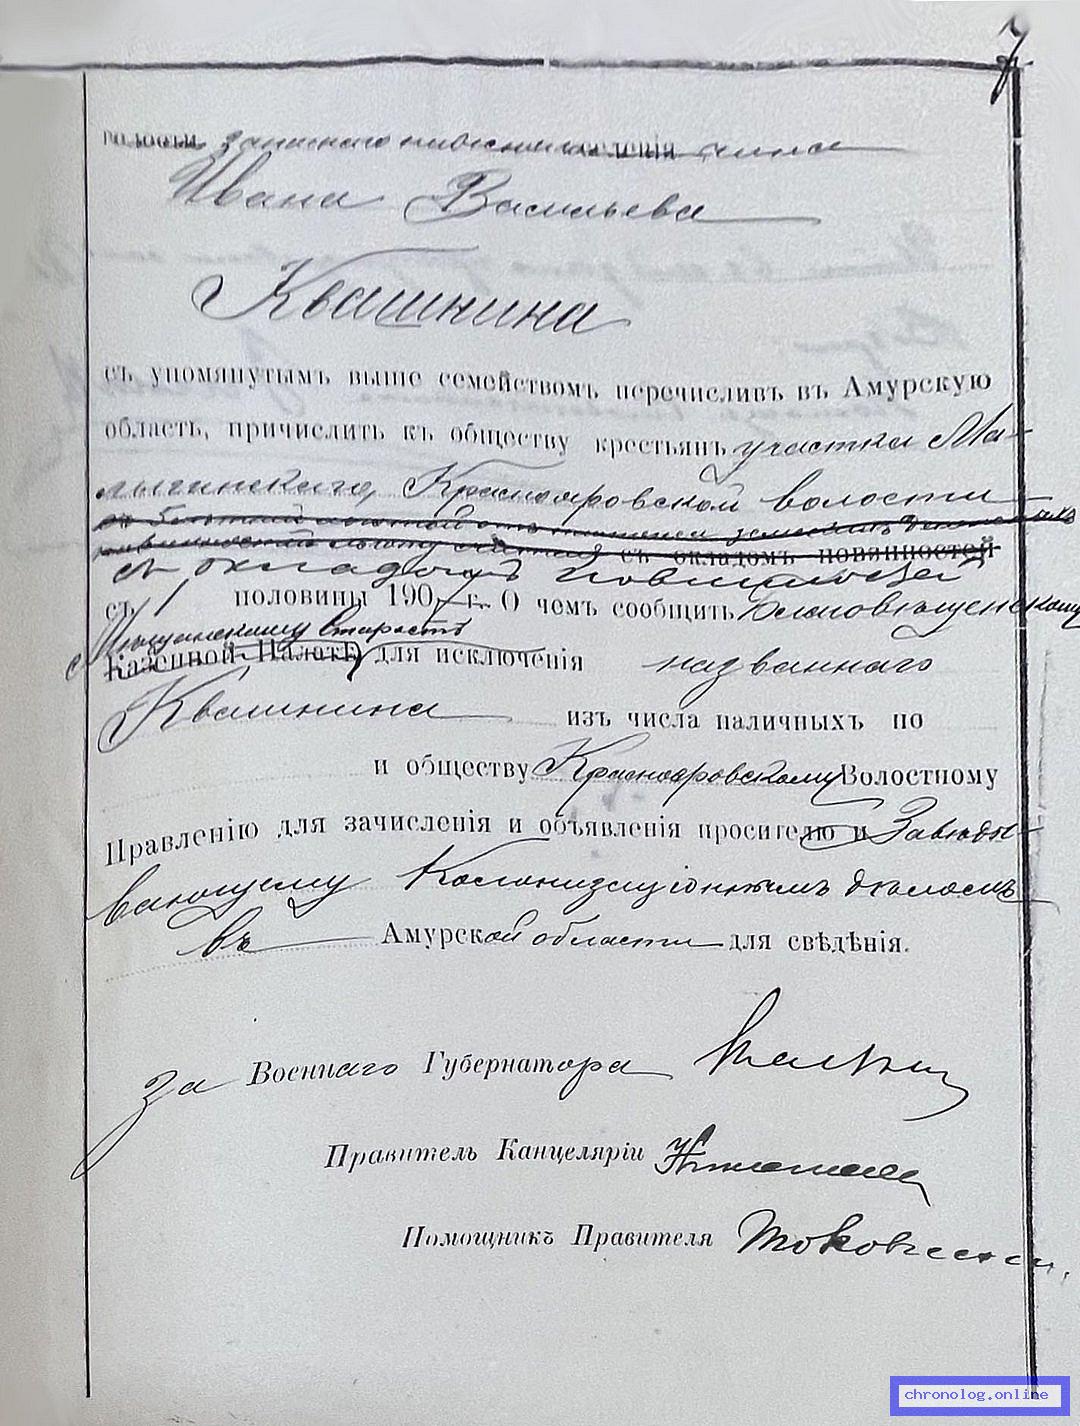 7
волости, запаснаго чина
Ивана Васильева
Квашнина
съ упомянутымъ выше семействомъ перечисливъ въ Амурскую
область, причислить къ обществу крестьянъ участка Ма-
лыгинскаго, Краснояровской волости
съ окладомъ повинностей
съ окладомъ повинностей
съ 1 половины 1907 г. О чемъ сообщить Благовѣщенскому
Мѣщанскому Старостѣ
Казенной Палатѣ, для исключенія названнаго
Квашнина изъ числа наличныхъ по
и обществу Краснояровскому Волостному
Правленію для зачисленія и объявленія просителю и Завѣды-
вающему Колонизаціоннымъ дѣломъ
въ Амурской области для свѣдѣнія.
За Военнаго Губернатора
Правитель Канцеляріи
Помощникъ Правителя
chronolog.online